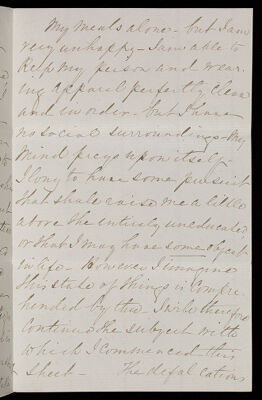 My meals alone - but I am
very unhappy - I am able to
keep my person and wear-
ing apparel perfectly clean
and in order - but I have
no social surroundings - My
mind preys upon itself -
I long to have some pursuit
that shall raise me a little
above the entirely uneducated
or that I may have some object
in life - However I imagine
this state of things is compre-
hended by thee - I will therefore
continue the subject with
which I commenced this
sheet - The defalcations